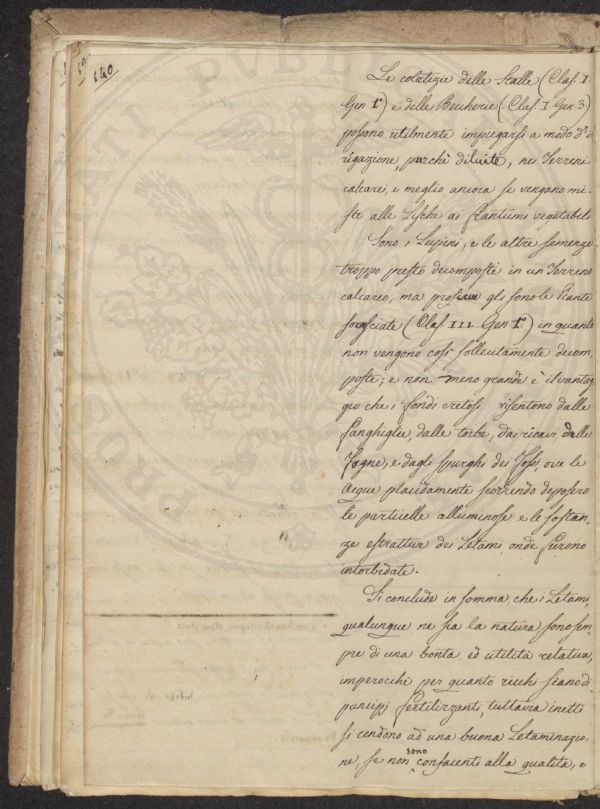 140
Le colatizie delle Stalle (Clas. I.
Gen 1º) e delle Beccherie (Clas. I. Gen. 3)
possono utilmente impiegarsi a modo d'ir
rigazione, purchè diluite, nei Terreni
calcarei, e meglio ancora se vengano mi-
ste alle Lische ai frantumi vegetabili
Sono i Lupini, e le altre semenze
troppo presto decomposte in un Terreno
calcareo, ma proficue gli sono le Piante
(Clas. III. Gen 1º) in quanto
non vengono così sollecitamente decom-
poste; e non meno grande è il vantag-
gio che i fondi cretosi risentono dalle
fanghiglie, dalle torbe, dai ricavi delle
Fogne, e dagli spurghi dei Fossi, ove le
Acque placidamente scorrendo deposero
le particelle alluminose e le sostan-
ze estrattive dei Letami, onde furono
intorbidate.
Si conclude in somma, che i Letami,
qualunque ne sia la natura sono sem-
pre di una bontà ed utilità relativa,
imperocchè per quanto ricchi siano di
principj fertilizzanti, tuttavia inetti
si rendono ad una buona Letaminazio-
ne, se non sono confacenti alla qualità, e